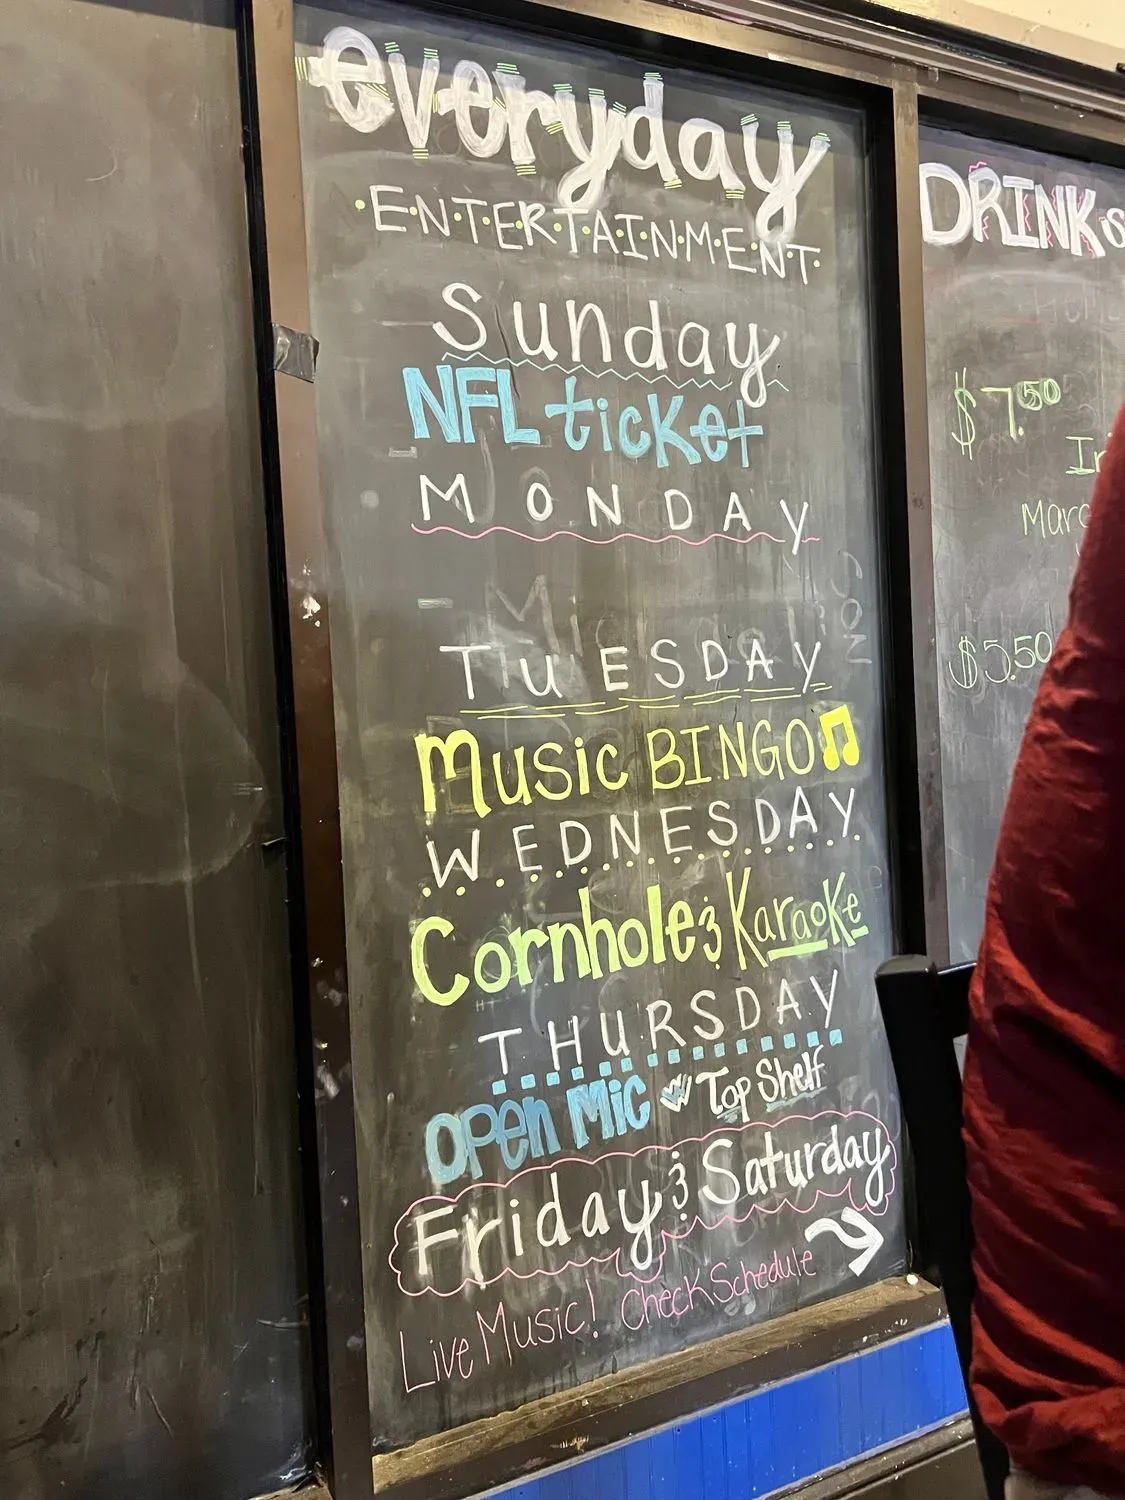 everyday
ENTERTAINMENT
Sunday
NFL ticket
MONDAY
TUESDAY
Music BINGO
WEDNESDAY
Cornhole & Karaoke
THURSDAY
OPEN MIC W Top Shelf
Friday & Saturday
Live Music! Check Schedule
DRINKS
$7.50
$5.50